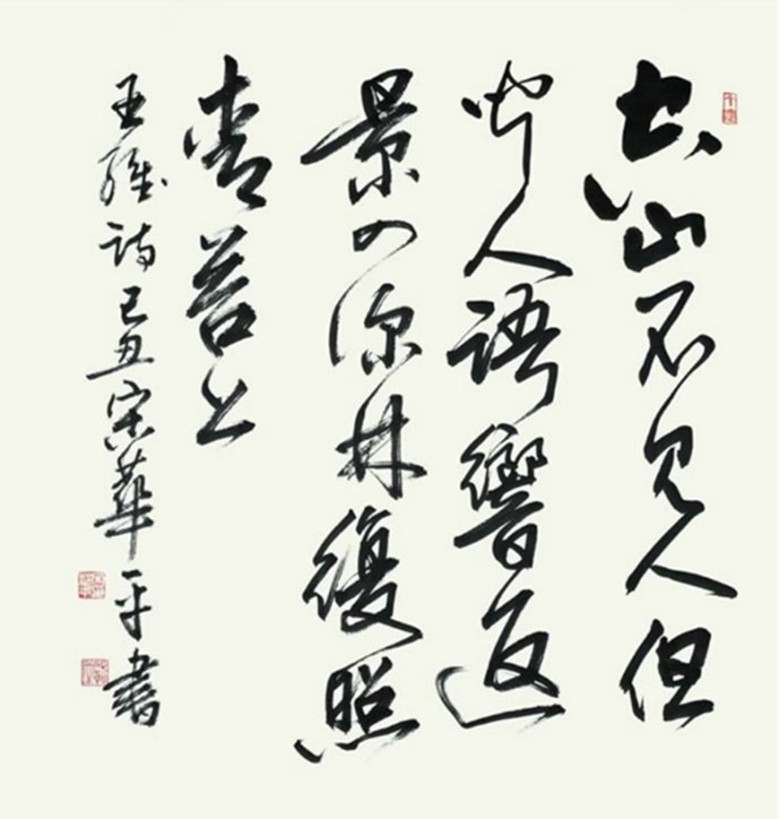 空山不見人但
聞人語響返
景入深林復照
青苔上
王維詩己丑宋華平書